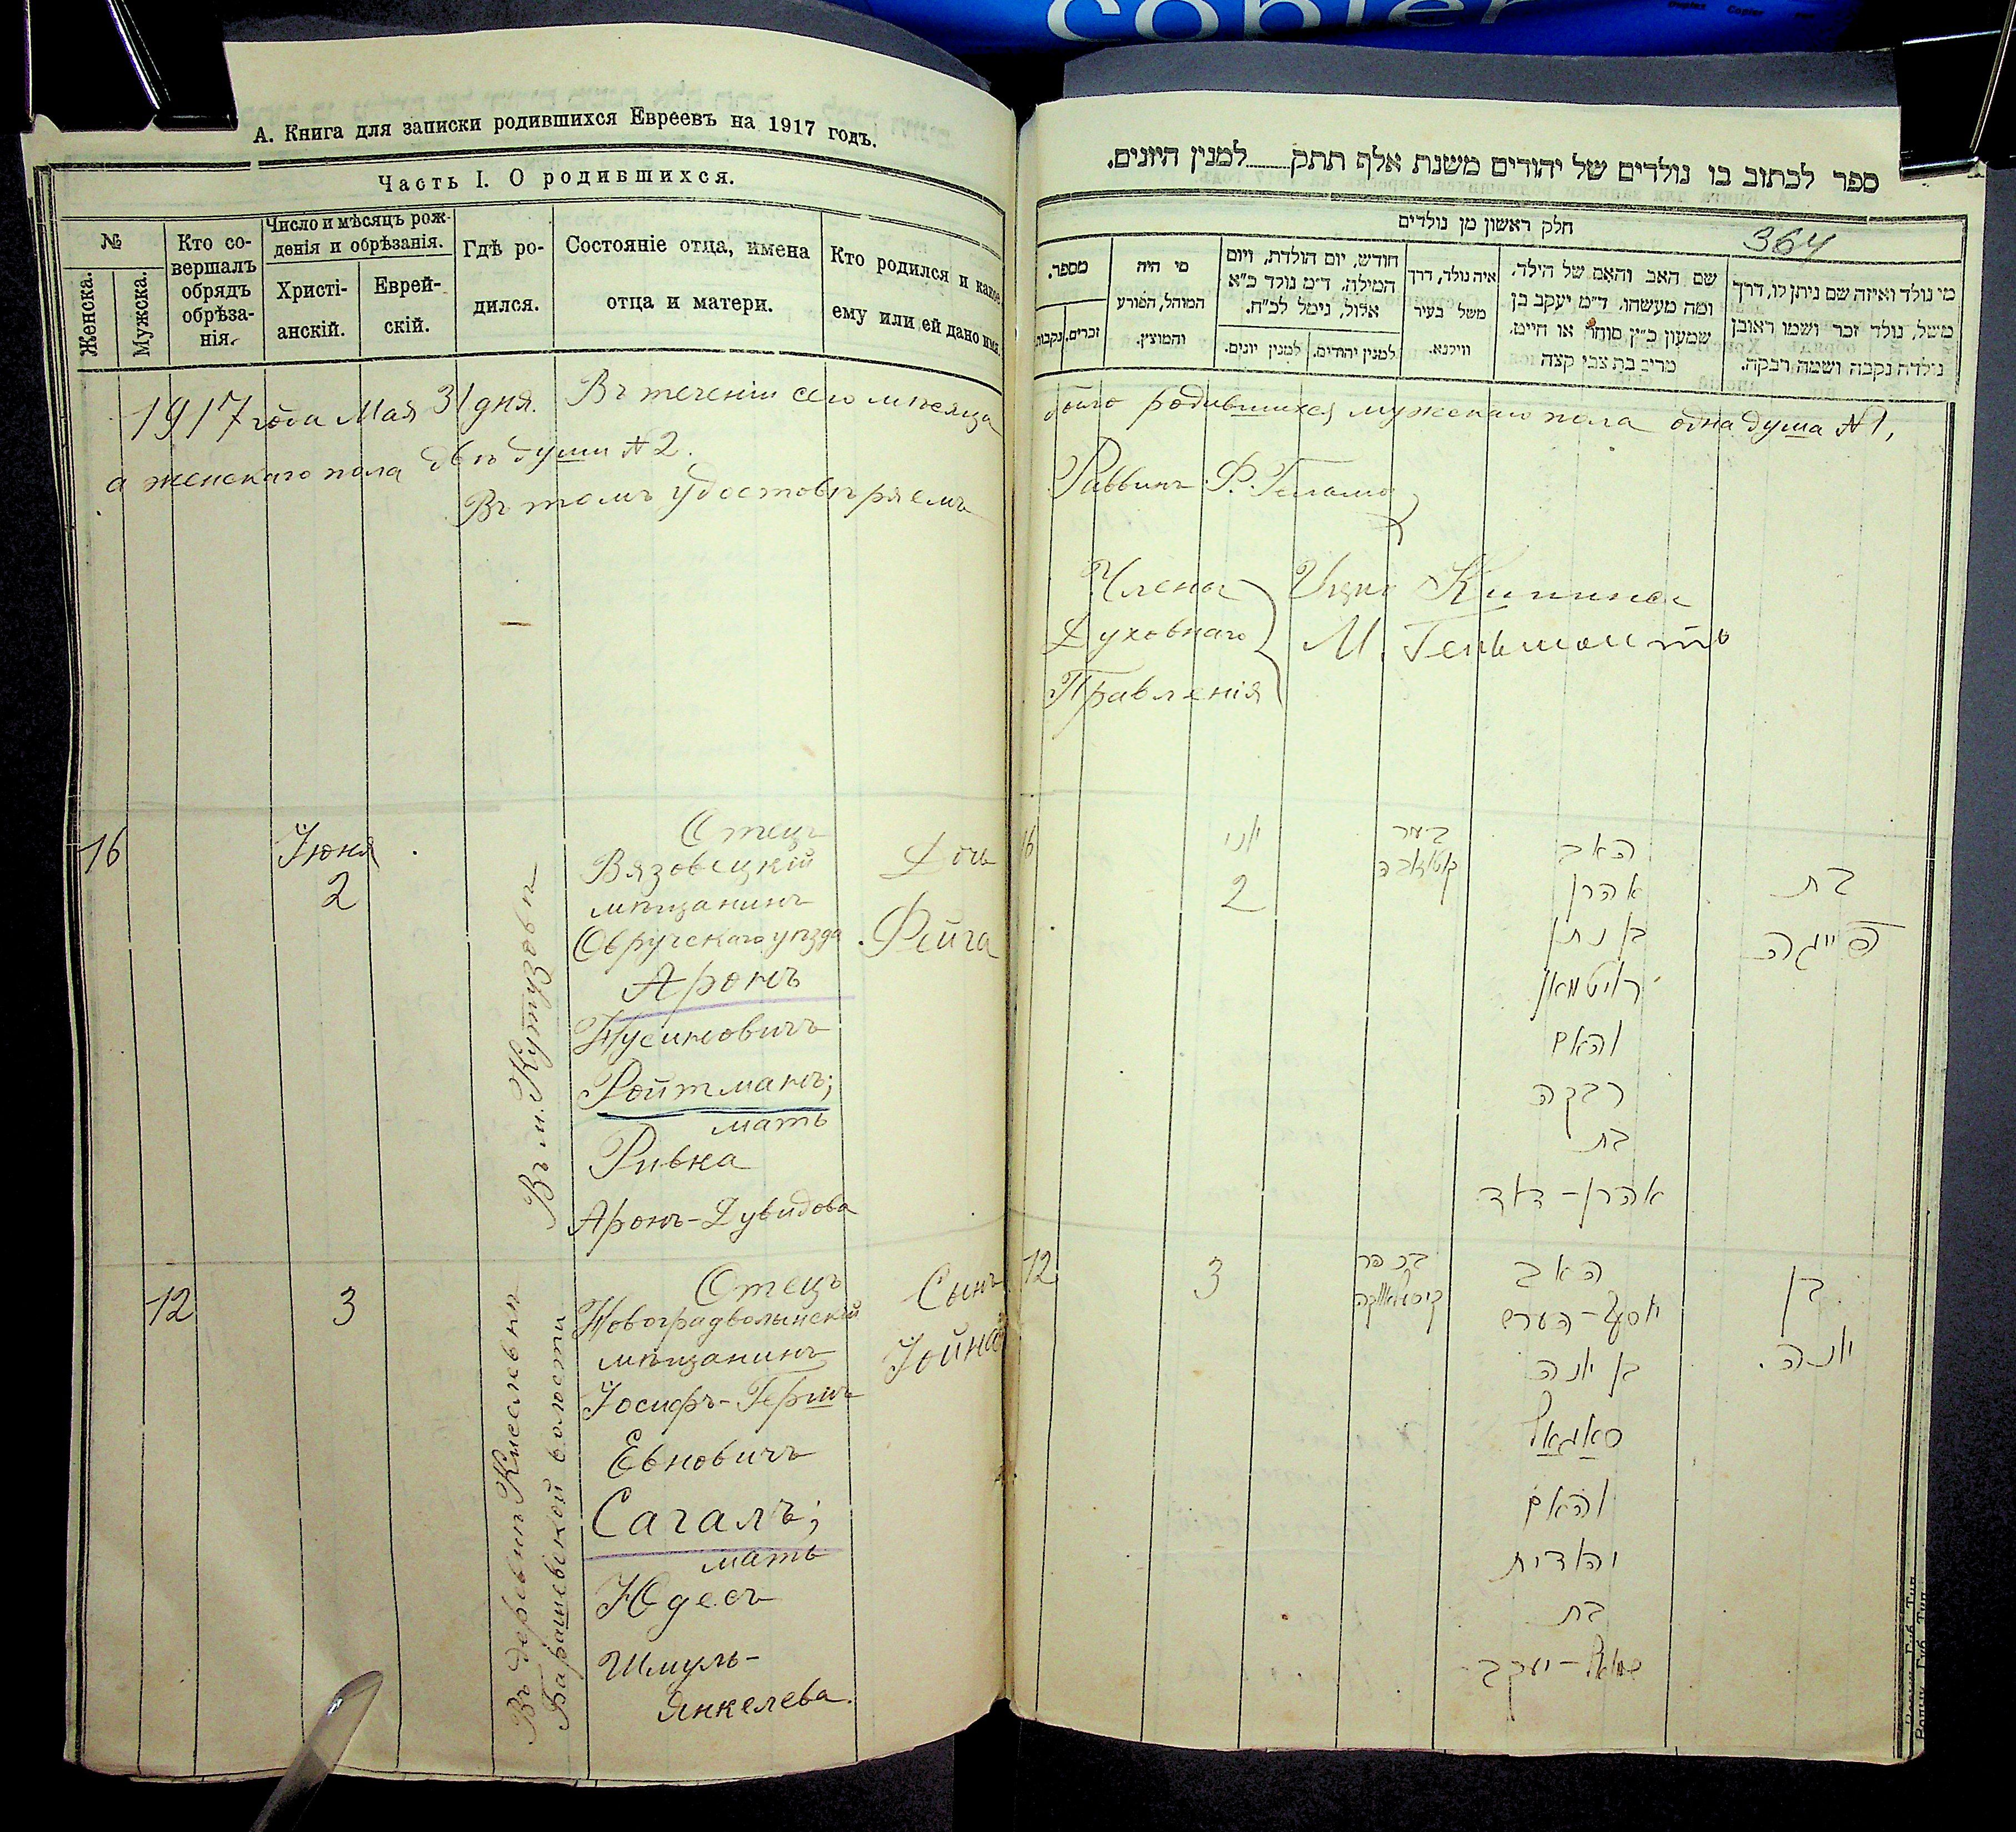 copier
Duplex Copier
А. Книга для записки родившихся Евреевъ на 1917 годъ.
Часть I. О родившихся.
№
Женска.
Мужска.
Кто со-
вершалъ
обрядъ
обрѣза-
нія.
Число и мѣсяцъ рож-
денія и обрѣзанія.
Христі-
анскій.
Еврей-
скій.
Гдѣ ро-
дился.
Состояніе отца, имена
отца и матери.
Кто родился и какое
ему или ей дано имя.
1917 года Мая 31 дня. Въ теченіи сего мѣсяца
а женскаго пола двѣ души № 2.
Въ томъ удостовѣряемъ
16
Іюня
2
Въ м. Кутузовѣ
Отецъ
Вязовецкій
мѣщанинъ
Овручскаго уѣзда
Аронъ
Нусиновичъ
Ройтманъ;
мать
Ривка
Аронъ-Дувидова
Дочь
Фейга
12
3
Въ деревни Киселевкѣ
Барашевской волости
Отецъ
Новоградволынскій
мѣщанинъ
Іосифъ-Гершъ
Евновичъ
Сагалъ;
мать
Юдесъ
Шмуль-
Янкелева.
Сынъ
Іойна
ספר לכתוב בו נולדים של יהודים משנת אלף תתק למנין היונים.
חלק ראשון מן נולדים
364
מספר.
זכרים.
נקבות
מי היה
המוהל, הפורע
והמוצין.
חודש, יום הולדת, ויום
המילה. ד״מ נולד כ״א
אלול, נימל לכ״ח.
למנין יונים.
למנין יהודים.
איה נולד, דרך
משל בעיר
ווילנא.
שם האב והאם של הילד,
ומה מעשהו. ד״מ יעקב בן
שמעון כ״ץ סוחר או חייט.
מרים בת צבי קצה
מי נולד ואיזה שם ניתן לו, דרך
משל, נולד זכר ושמו ראובן
נולדה נקבה ושמה רבקה.
было родившихся мужскаго пола одна душа № 1,
Раввинъ Ф.
Члена
Духовнаго
Правленія
М.
16
יוני
2
האב
אהרן
בן נתן
רויטמאן
והאם
רבקה
בת
אהרן-דוד
בת
פייגה
12
3
בכפר
האב
יוסף-הערש
בן יונה
סאגאל
והאם
יהודית
בת
שמואל-יעקב
בן
יונה.